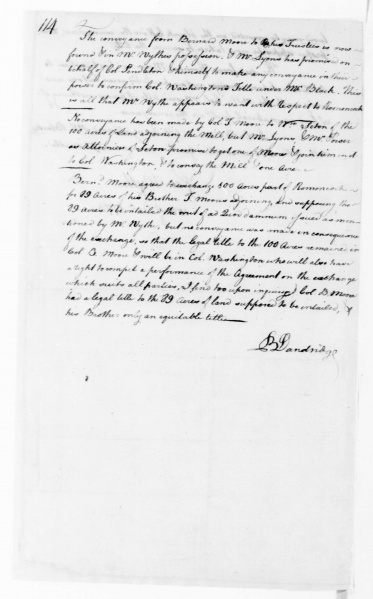 114
The conveyance from Bernard Moore to his Trustees is now
found in Mr Wythes possession. & Mr Lyons has promised on
behalf of Col Pendleton & himself to make any conveyance in their
power to confirm Col Washington's Title under Mr Black. This
is all that Mr Wythe appears to want with respect to Romancoke
No conveyance has been made by Col T Moore to Wm Seton of the
100 Acres of Land adjoining the Mill, but Mr Lyons & Mr Power
as Attornies of Seton promise to get one of Moore & join in
to Col Washington, & to convey the Mill & one Acre
Bernd Moore agreed to exchange 100 Acres part of Romancoke
for 29 Acres of his Brother T Moores adjoining and supposing the
29 Acres to be intailed the writ of ad quod damnum issued as men
tioned by Mr Wythe, but no conveyance was made in consequence
of the exchange, so that the legal title to the 100 Acres remained in
Col B. Moore & will be in Col. Washington who will also have
a right to compel a performance of the Agreement on the exchange
which suits all parties, I find too upon inquiry Col B. Moore
had a legal title to the 29 Acres of land supposed to be intailed, &
his Brother only an equitable title
B Dandridge